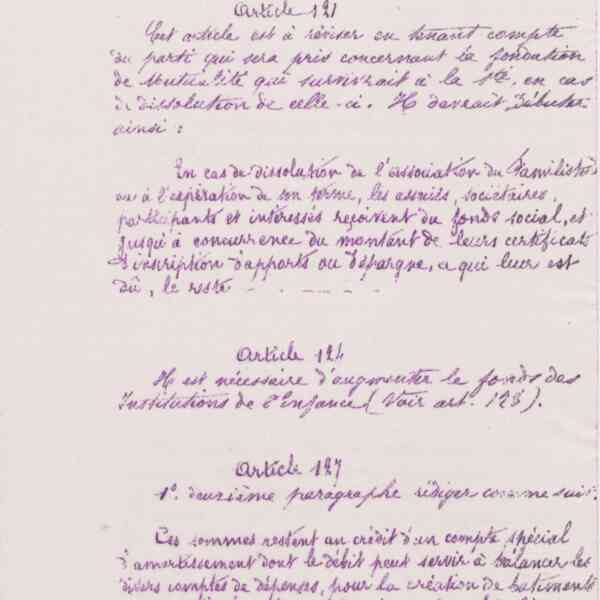 Article 121
Cet article est à réviser en tenant compte
du parti qui sera pris concernant la fondation
de Mutualité qui survivrait à la Sté, en cas
de dissolution de celle-ci. Il devrait débuter
ainsi :
En cas de dissolution de l'association du Familistère
ou à l'expiration de son terme, les associés, sociétaires,
participants et intéressés reçoivent du fonds social, et
jusqu'à concurrence du montant de leurs certificats
d'inscription d'apports ou d'épargne, ce qui leur est
dû, le reste - . - . - . -
Article 124
Il est nécessaire d'augmenter le fonds des
Institutions de l'Enfance (Voir art. 128).
Article 127
1º. deuxième paragraphe rédiger comme suit.
Ces sommes restent au crédit d'un compte spécial
d'amortissement dont le débit peut servir à balancer les
divers comptes de dépenses, pour la création de batiments